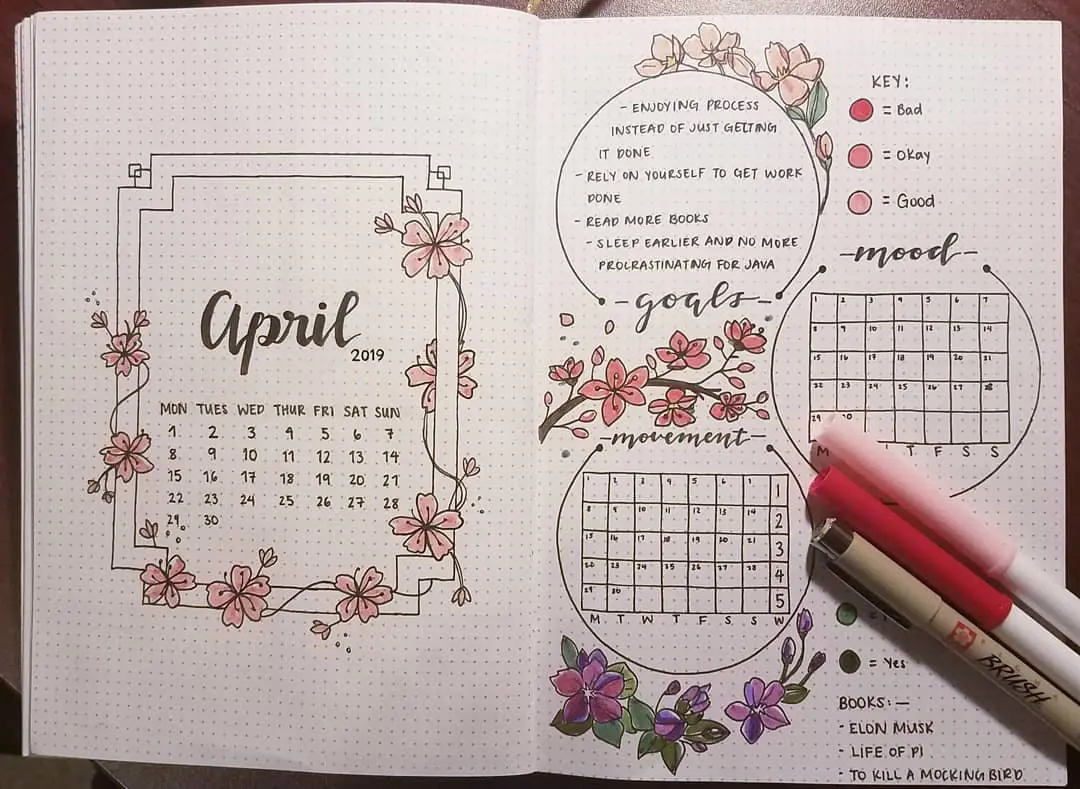 April
2019
MON TUES WED THUR FRI SAT SUN
1 2 3 4 5 6 7
8 9 10 11 12 13 14
15 16 17 18 19 20 21
22 23 24 25 26 27 28
29 30
- ENJOYING PROCESS
INSTEAD OF JUST GETTING
IT DONE
- RELY ON YOURSELF TO GET WORK
DONE
- READ MORE BOOKS
- SLEEP EARLIER AND NO MORE
PROCRASTINATING FOR JAVA
- goals -
KEY:
= Bad
= Okay
= Good
- mood -
1 2 3 4 5 6 7
8 9 10 11 12 13 14
15 16 17 18 19 20 21
22 23 24 25 26 27 28
29 30
M T F S S
- movement -
1 2 3 4 5 6 7 1
8 9 10 11 12 13 14 2
15 16 17 18 19 20 21 3
22 23 24 25 26 27 28 4
29 30 5
M T W T F S S W
= Yes
BOOKS: —
- ELON MUSK
- LIFE OF PI
- TO KILL A MOCKING BIRD
BRUSH